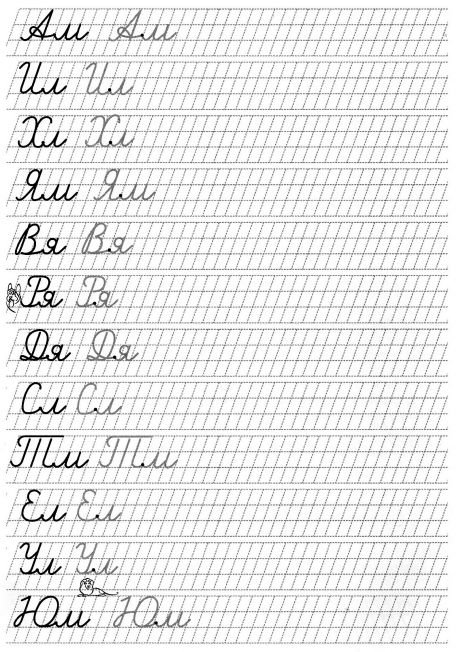 Ам Ам
Ил Ил
Хл Хл
Ям Ям
Вя Вя
Ря Ря
Дя Дя
Сл Сл
Тм Тм
Ел Ел
Ул Ул
Юм Юм